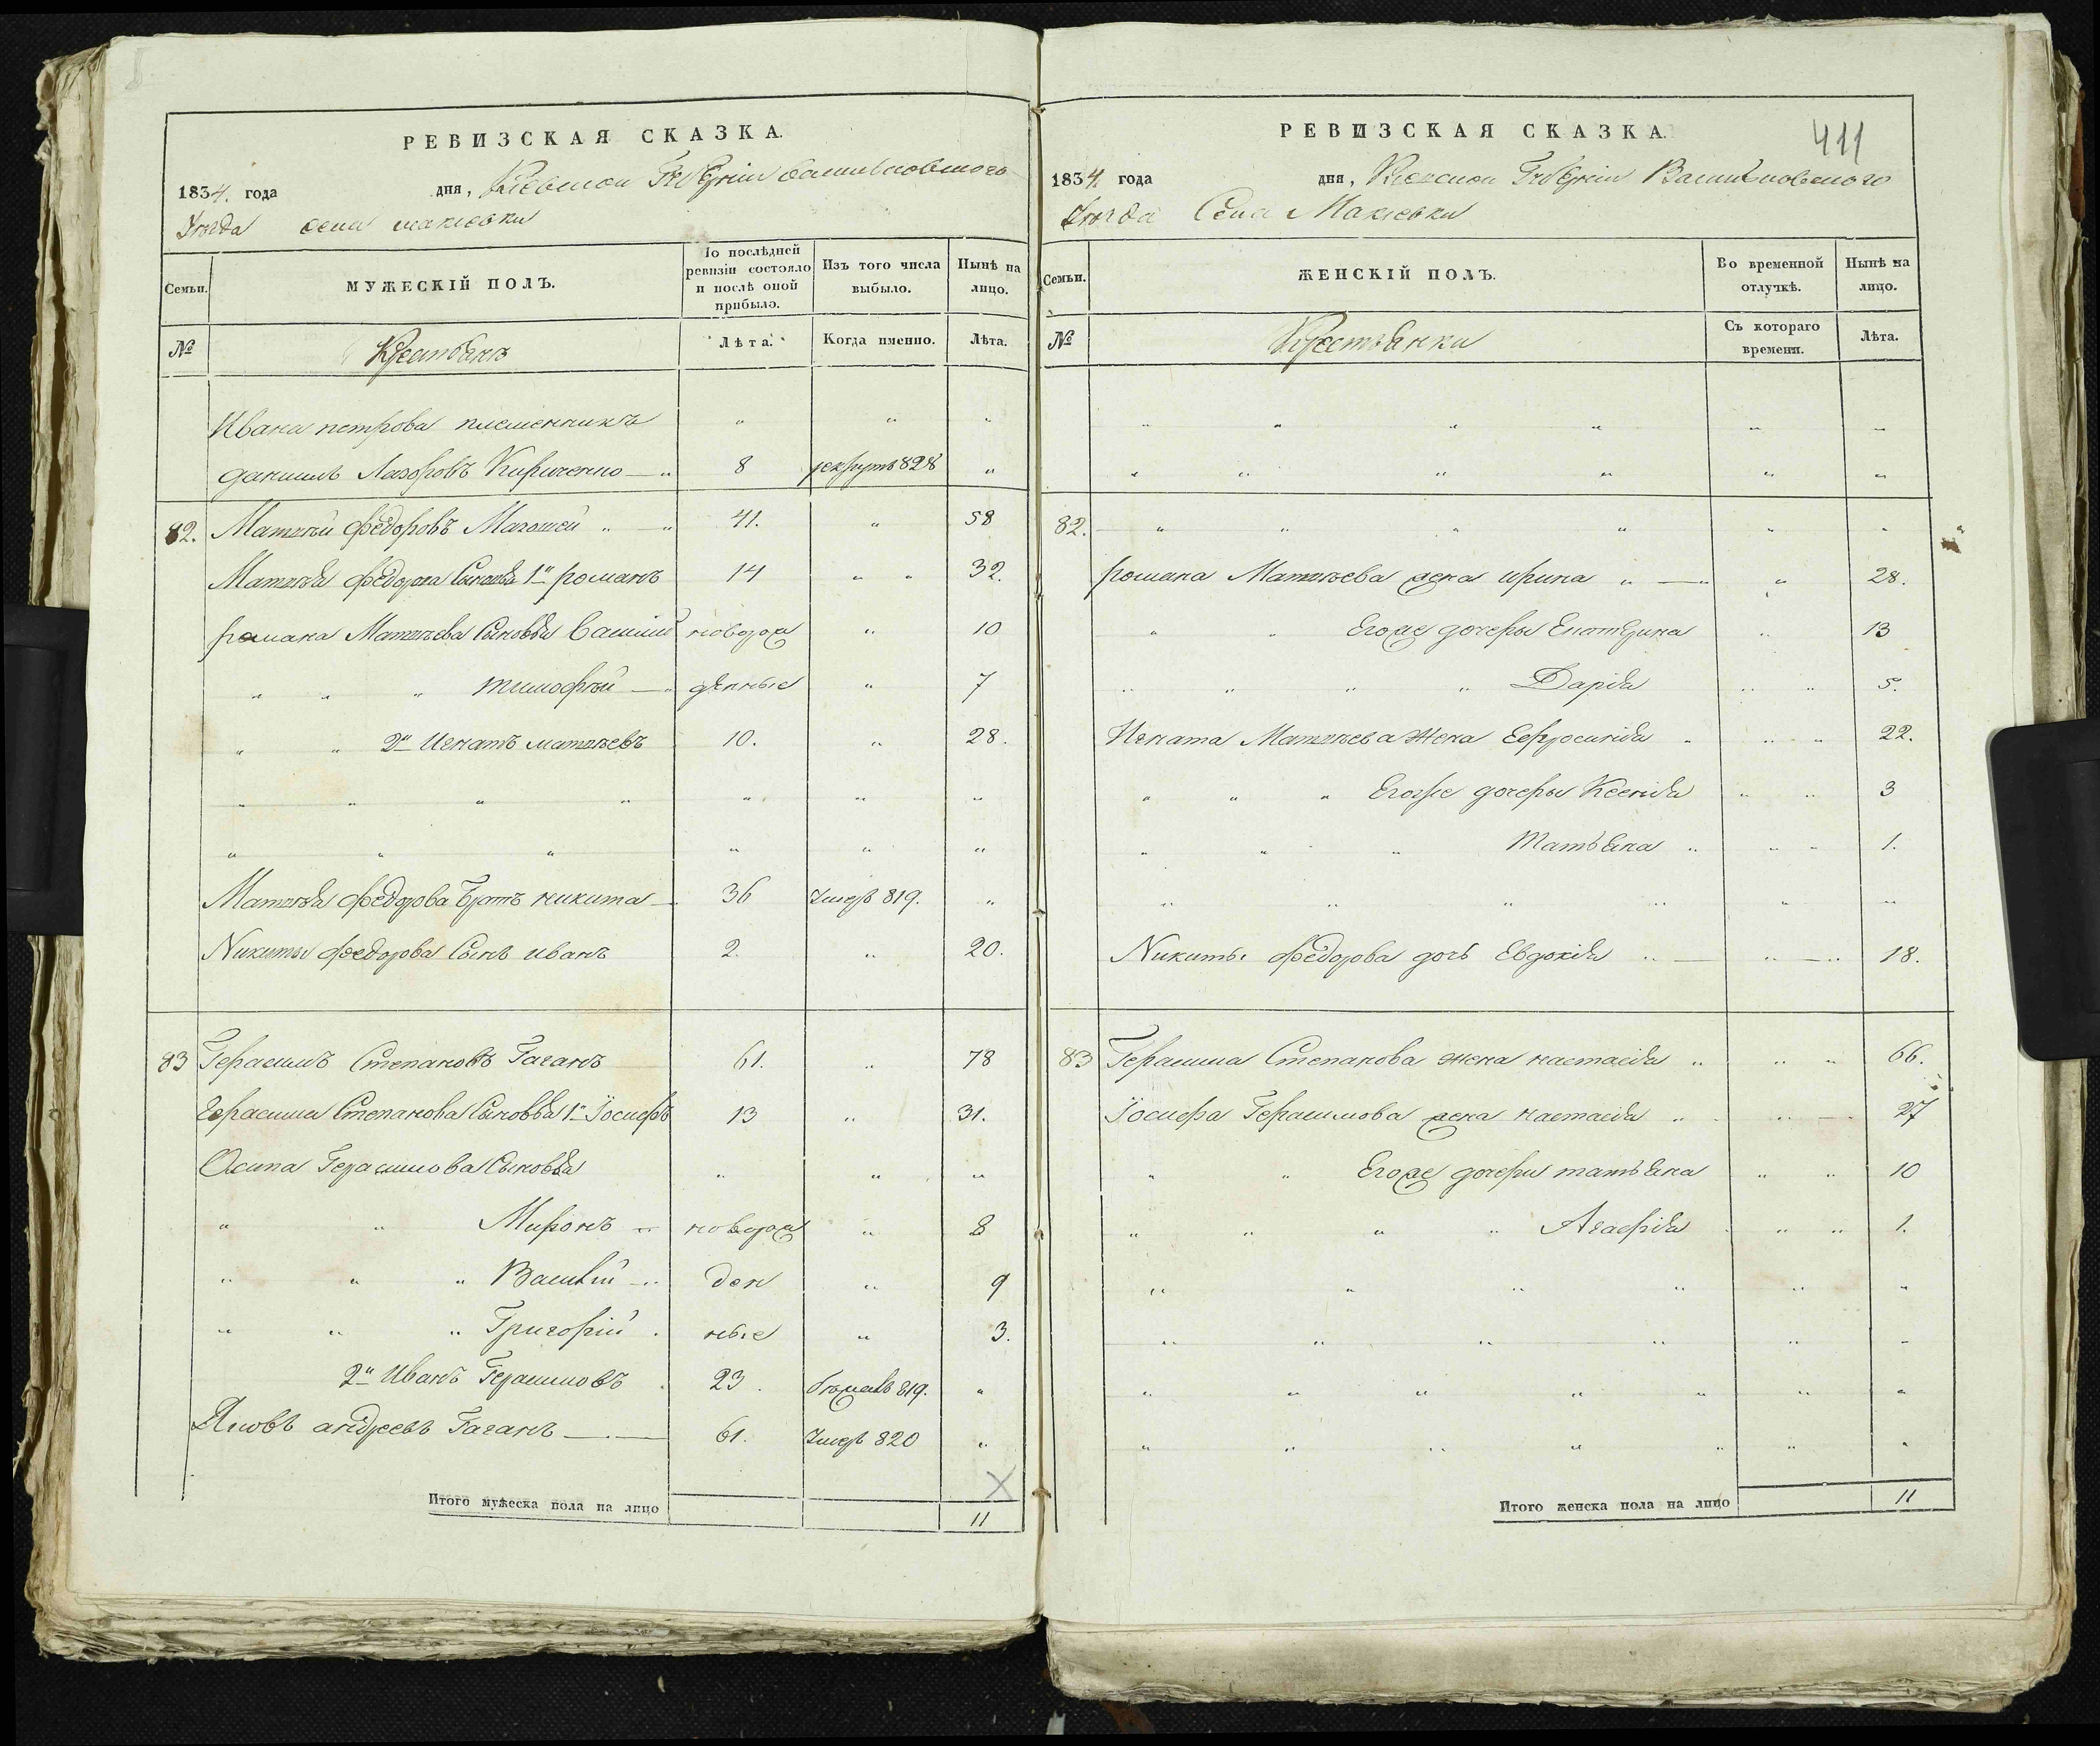 РЕВИЗСКАЯ СКАЗКА.
1834. года дня, Киевской Губерніи Васильковского
Уезда села макіевки
Семьи. МУЖЕСКІЙ ПОЛЪ. По послѣдней ревизіи состояло и послѣ оной прибыло. Изъ того числа выбыло. Нынѣ на лицо.
№ Крестьянъ Лѣта. Когда именно. Лѣта.
Ивана петрова племенникъ " " "
даниилъ Лазоровъ Кириченко " 8 рекрутъ 828 "
82. Матвѣй Федоровъ " " 41. " 58
Матвѣя Федорова Сыновья 1й романъ 14 " " 32.
романа Матвѣева Сыновья Василій новорож " 10
" " " тимофѣй " денные " 7
" " 2й Игнатъ матвѣевъ 10. " 28.
" " " " " " "
" " " " " "
Матвѣя Федорова братъ никита 36 Умеръ 819. "
Никиты Федорова Сынъ иванъ 2. " 20.
83 Герасимъ Степановъ Гаганъ 61. " 78
Герасима Степанова Сыновья 1й Іосифъ 13 " 31.
Осипа Герасимова Сыновья " " "
" " Миронъ " новорож " 8
" " " Василій " ден " 9
" " " Григорій ные " 3.
2й Иванъ Герасимовъ 23. бѣжалъ 819. "
Яковъ андреевъ Гаганъ 61. Умеръ 820 "
Итого мужеска пола на лицо 11
РЕВИЗСКАЯ СКАЗКА.
411
1834. года дня, Киевской Губерніи Васильковского
Уезда Села Макіевки
Семьи. ЖЕНСКІЙ ПОЛЪ. Во временной отлучкѣ. Нынѣ на лицо.
№ Крестьянки Съ котораго времени. Лѣта.
" " " " " "
" " " " " "
82. " " " " " "
романа Матвѣева жена ирина " " " 28.
" " Егоже дочеры Екатерина " 13
" " " " Дарія " " 5.
Игната Матвѣева жена Ефросинія " " " 22.
" " " Егоже дочеры Ксенія " " 3
" " " Татьяна " " " 1.
" " " " " "
Никиты Федорова дочь Евдокія " " " 18.
83 Герасима Степанова жена настасія " " " 66.
Іосифа Герасимова жена настасія " " 27
" " Егоже дочери татьяна " " 10
" " " " Агафія " " 1.
" " " " " "
" " " " " "
" " " " " " "
" " " " " " "
Итого женска пола на лицо 11